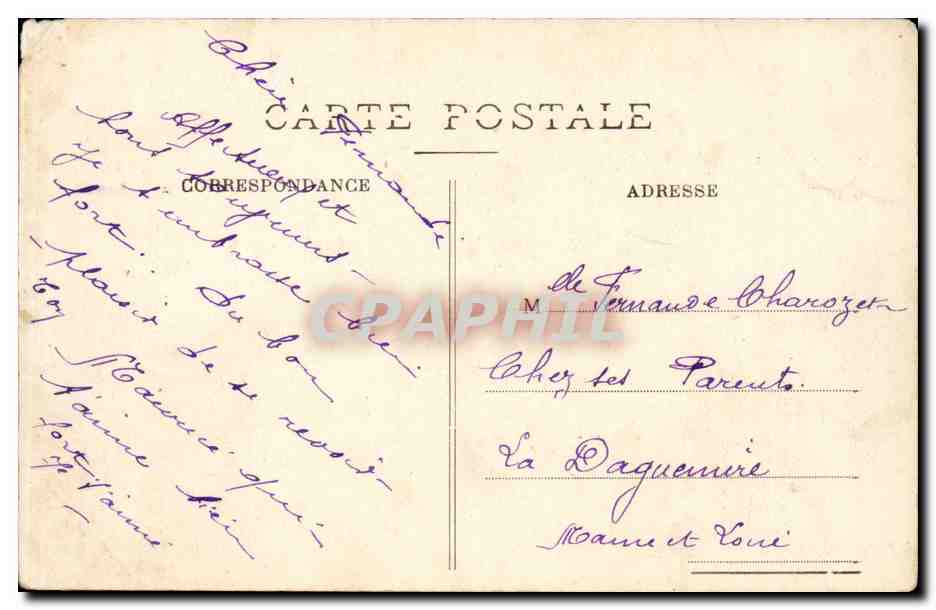 CARTE POSTALE
CORRESPONDANCE
ADRESSE
Chère
Fernande
Affectueux et
tous toujours -
Je t'embrasse bien
fort. Du bon
plaisir de te revoir -
Ton Maurice qui
t'aime bien
fort.
Je t'aime
Melle Fernande Charozet
Chez ses Parents.
La Daguenière
Maine et Loire
CPAPHIL